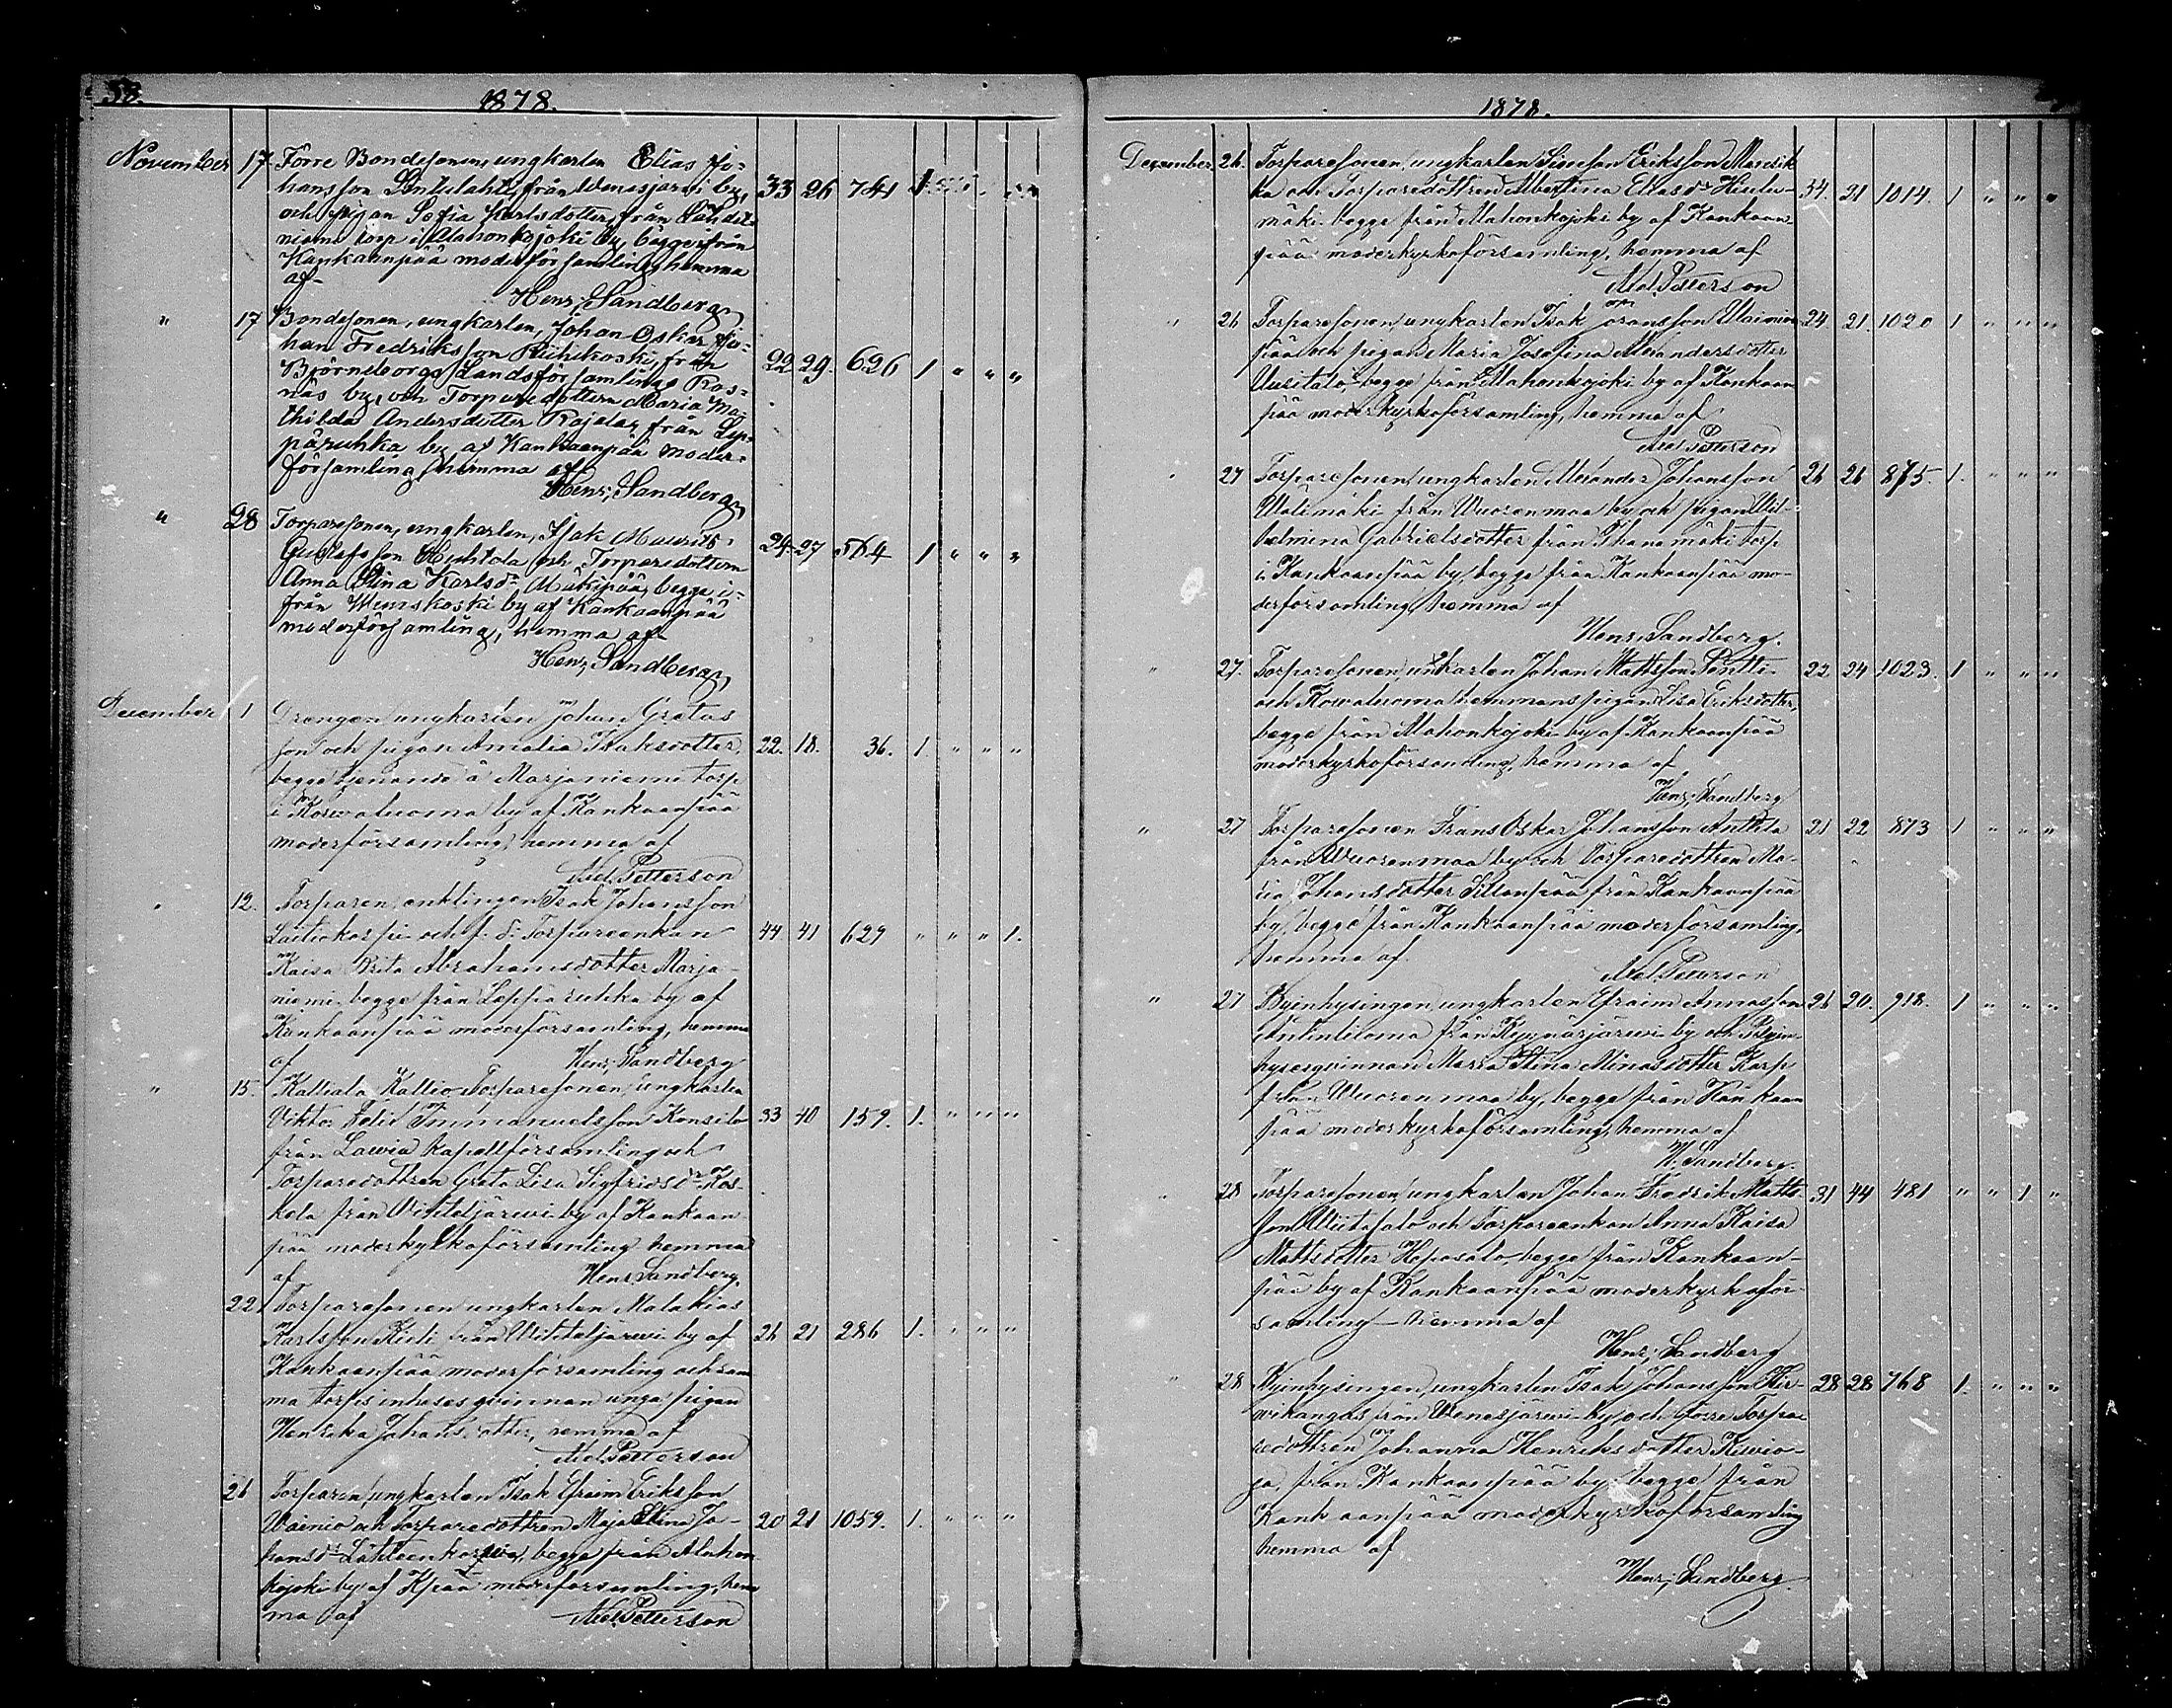 58.
1878.
November 17 Förre Bondesonen, ungkarlen Elias Jo-
hansson Santalahti, från Wenesjärvi by, 33 26 741 1
och pigan Sofia Karlsdotter, från Lähdet-
niemi torp i Alahonkojoki by, begge ifrån
Kankaanpää moderförsamling, hemma
af
Henr; Sandberg
" 17 Bondesonen, ungkarlen, Johan Oskar Jo-
han Fredriksson Riihikoski, från 22 29. 626 1 " " "
Björneborgs Landsförsamlings Ros-
näs by, och Torparedottern Maria Ma-
thilda Andersdotter Rajala, från Lep-
päruhka by af Kankaanpää moder-
församling, hemma af
Henr; Sandberg
" 28 Torparesonen, ungkarlen, Isak Maurits
Gustafsson Huhtala och Torparedottern 24 27 564 1 " " "
Anna Stina Karlsdr Mäkipää, begge i-
från Wenskoski by af Kankaanpää
moderförsamling, hemma af
Henr; Sandberg
December 1 Drengen ungkarlen Johan Gretas
son och pigan Amalia Isaksdotter, 22. 18. 36. 1. " " "
begge tjenande å Marjaniemi torp
i Korvaluoma by af Kankaanpää
moderförsamling, hemma af
Axel Petterson
" 12. Torparen, enklingen Isak Johansson
Laitiokorpi och f. d. Torpareenkan 44 41 629 " " " 1.
Kaisa Brita Abrahamsdotter Marja-
niemi begge från Leppäruhka by af
Kankaanpää moderförsamling, hemma
af Henr; Sandberg
" 15. Kalliala Kallio Torparesonen, ungkarlen
Viktor Felix Immanuelsson Konsilo 33 40 159. 1. " " "
från Lavia Kapellförsamling och
Torparedottren Greta Lisa Sigfridsdr Kos-
kela från Wihteljärvi by af Kankaan-
pää moderkyrkoförsamling hemma
af Henr; Sandberg.
22 Torparesonen ungkarlen Malakias
Karlsson Kivi från Wihteljärvi by af 26 21 286 1. " " "
Kankaanpää moderförsamling och sam
ma torps inhysesqvinnan unga pigan
Henrika Johansdotter, hemma af
Axel Petterson
26 Torparen, ungkarlen Isak Efraim Eriksson
Wainio och Torparedottren Maja Stina Jo- 20 21 1059. 1. " " "
hansdr Lähteenkorva, begge från Alahon
kojoki by af Kpää moderförsamling, hem
ma af Axel Petterson
1878.
December 26. Torparesonen, ungkarlen Simson Eriksson Mansik
ka och Torparedottren Albertina Eliasdr Hietu- 34. 21 1014. 1 " " "
mäki begge från Alahonkojoki by af Kankaan-
pää moderkyrkoförsamling, hemma af
Axel Petterson
" 26 Torparesonen, ungkarlen Isak Göransson Wainion 24 21. 1020 1 " " "
pää och pigan Maria Josefina Alexandersdotter
Uusitalo, begge från Alahonkojoki by af Kankaan
pää moderkyrkoförsamling, hemma af
Axel Petterson
" 27 Torparesonen, ungkarlen Alexander Johansson 26 26 875. 1. " " "
Wälimäki från Wuorenmaa by och pigan Wil-
helmina Gabrielsdotter från Ihanamäki torp
i Kankaanpää by, begge från Kankaanpää mo-
derförsamling, hemma af
Henr; Sandberg.
" 27. Torparesonen, ungkarlen Johan Mattsson Pentti 22 24 1023. 1 " " "
och Korvaluoma hemmans pigan Lisa Eriksdotter,
begge från Alahonkojoki by af Kankaanpää
moderkyrkoförsamling, hemma af
Henr; Sandberg
" 27 Torparesonen Frans Oskar Johansson Anttila 21 22 873 1 " " "
från Wuorenmaa by och Torparedottren Ma-
ria Johansdotter Sillanpää från Kankaanpää
by, begge från Kankaanpää moderförsamling,
hemma af
Axel Petterson
" 27 Byinhysingen, ungkarlen Efraim Annasson 26 20. 918. 1 " " "
Antinluoma från Kyynärjärvi by och Byin-
hysesqvinnan Maria Stina Minasdotter Karp
från Wuorenmaa by, begge från Kankaan
pää moderkyrkoförsamling, hemma af
H; Sandberg.
" 28 Torparesonen, ungkarlen Johan Fredrik Matts- 31 44 481 " " 1 "
son Wiitasalo och Torpareenkan Anna Kaisa
Mattsdotter Haposalo, begge från Kankaan-
pää by af Kankaanpää moderkyrkoför-
samling hemma af
Henr; Sandberg
" 28 Byinhysingen, ungkarlen Isak Johansson Hir- 28 28 768 1. " " "
vikangas från Wenesjärvi by och förre Torpa-
redottren Johanna Henriksdotter Kivio-
ja, från Kankaanpää by, begge från
Kankaanpää moderkyrkoförsamling
hemma af
Henr; Sandberg